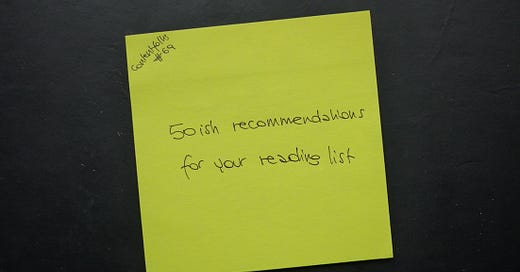 Contentfolks
#69
50ish recommendations
for your reading list